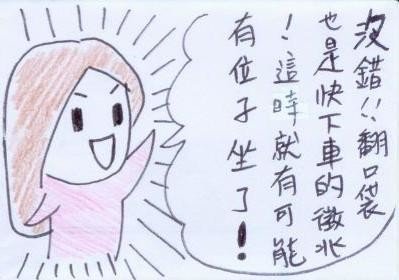 沒錯!!翻口袋
也是快下車的徵兆
!這時就有可能
有位子坐了!